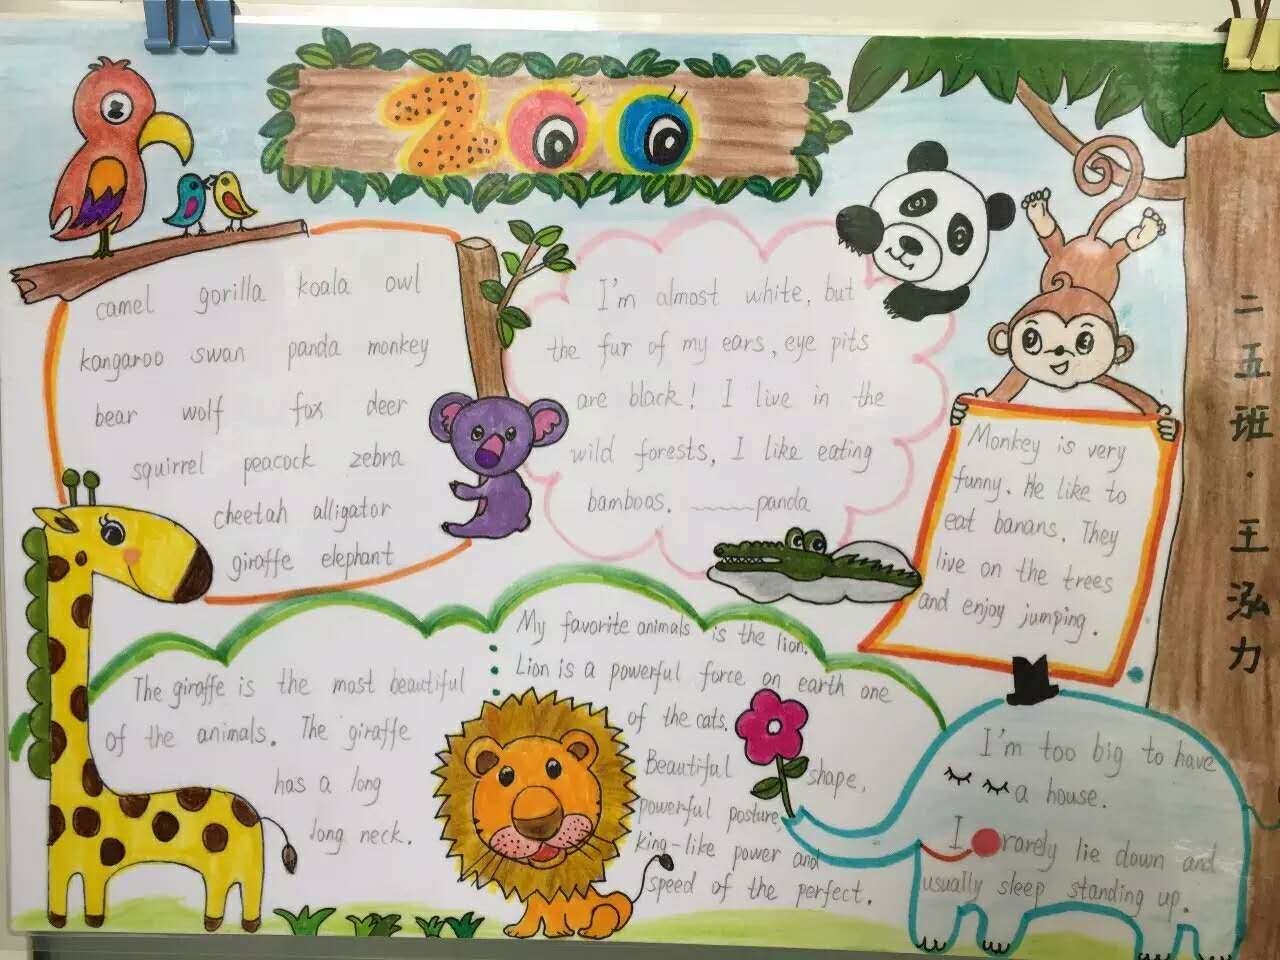 ZOO
camel gorilla koala owl
kangaroo swan panda monkey
bear wolf fox deer
squirrel peacock zebra
cheetah alligator
giraffe elephant
I'm almost white, but
the fur of my ears, eye pits
are black! I live in the
wild forests, I like eating
bamboos. ﹏﹏panda
Monkey is very
funny. He like to
eat banans. They
live on the trees
and enjoy jumping.
二五班·王泓力
The giraffe is the most beautiful
of the animals. The giraffe
has a long
long neck.
My favorite animals is the lion.
Lion is a powerful force on earth one
of the cats.
Beautiful shape,
powerful posture,
king-like power and
speed of the perfect.
I'm too big to have
a house.
I rarely lie down and
usually sleep standing up.